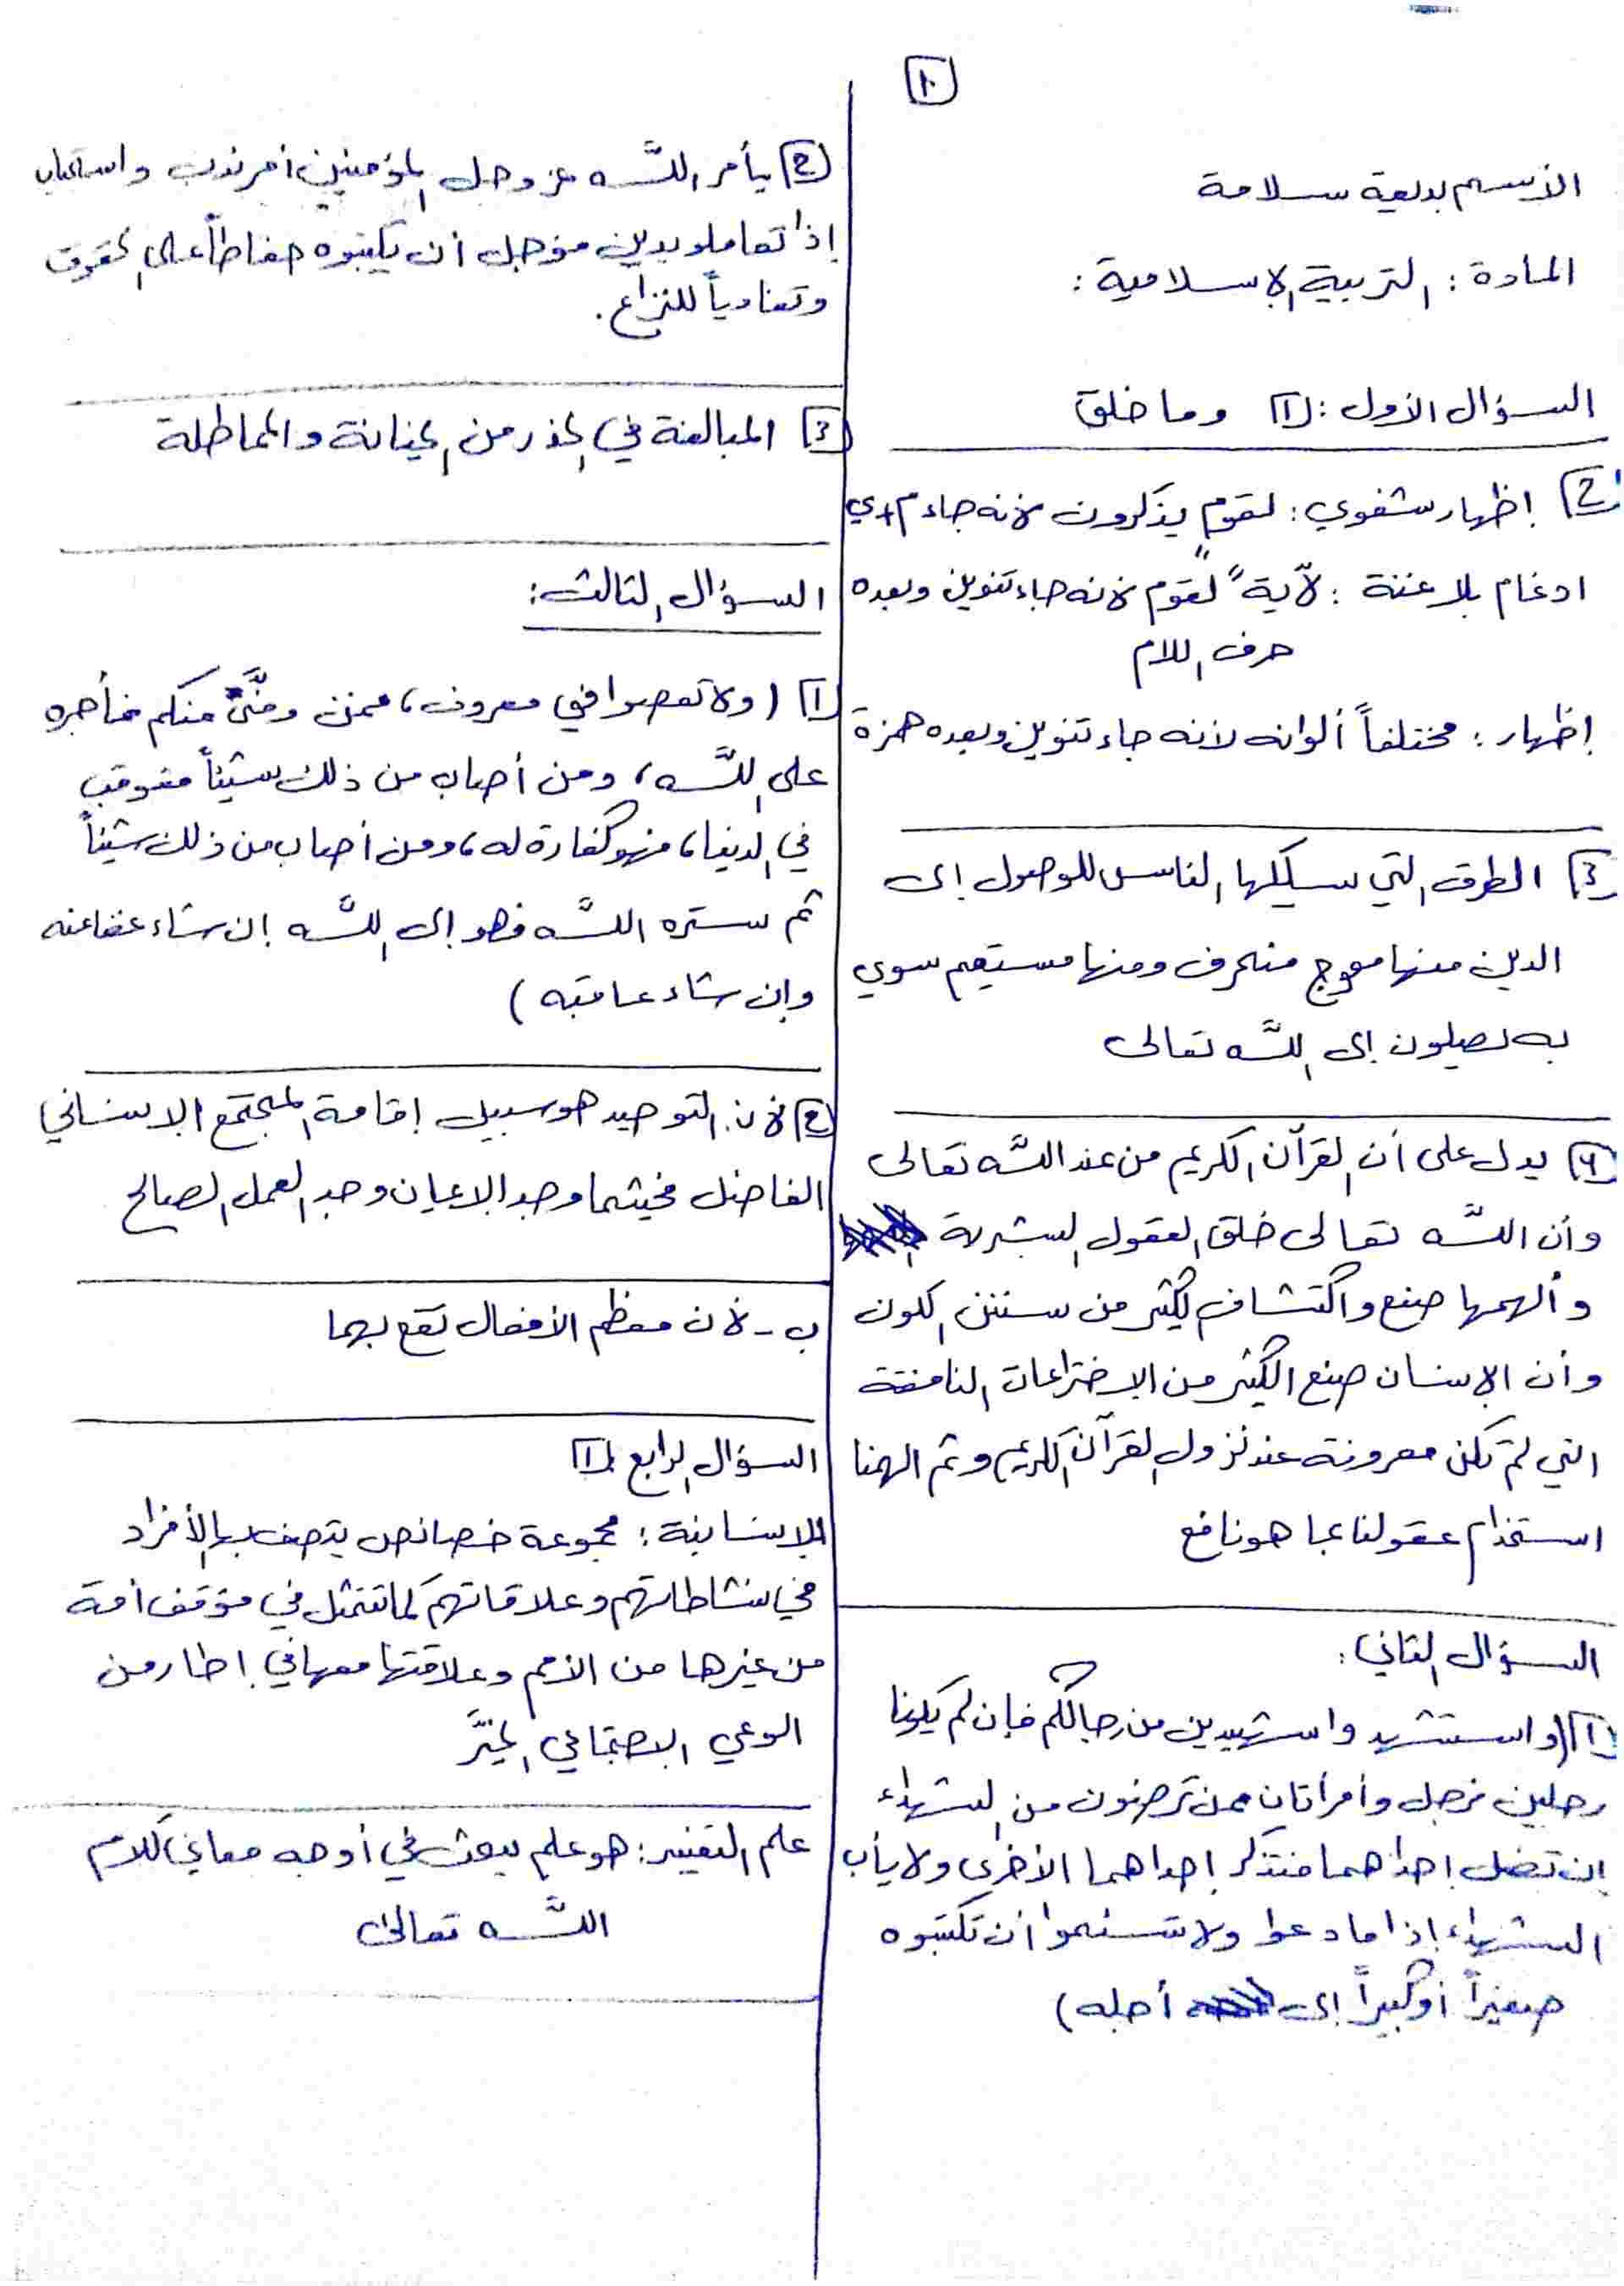 ١٠
الأسم بديعة سلامة
المادة : التربية الإسلامية :
السؤال الأول : 1 وما خلق
2 إظهار شفوي : لقوم يذكرون لأنه جاء م + ي
ادغام بلا غنة : لآيةً لقوم لأنه جاء تنوين وبعده
حرف اللام
إظهار : مختلفاً ألوانه لأنه جاء تنوين وبعده همزة
3 الطرق التي سيلكها الناس للوصول إلى
الدين منها معوج منحرف ومنها مستقيم سوي
به يصلون إلى الله تعالى
4 يدل على أن القرآن الكريم من عند الله تعالى
وأن الله تعالى خلق العقول البشرية
وألهمها صنع واكتشاف لكثير من سنن الكون
وأن الإنسان صنع الكثير من الإختراعات النافعة
التي لم تكن معروفة عند نزول القرآن الكريم وثم الهمنا
استخدام عقولنا بما هو نافع
السؤال الثاني :
1 (واستشهد واشهيدين من رجالكم فإن لم يكونا
رجلين فرجل وأمرأتان ممن ترضون من الشهداء
إن تضل إحداهما فتذكر إحداهما الأخرى ولا يأب
الشهداء إذا ما دعوا ولا تسئموا أن تكتبوه
صغيراً أو كبيراً إلى أجله)
2 يأمر الله عز وجل المؤمنين أمر ندب واستحباب
إذا تعاملو بدين مؤجل أن يكتبوه حفاظاً على الحقوق
وتفادياً للنزاع.
3 المبالغة في الحذر من الخيانة والمماطلة
السؤال الثالث :
1 (ولا تعصوا في معروف، فمن وفَّى منكم فأجره
على الله، ومن أصاب من ذلك شيئاً فعوقب
في الدنيا، فهو كفارة له، ومن أصاب من ذلك شيئاً
ثم ستره الله فهو إلى الله إن شاء عفا عنه
وإن شاء عاقبه)
2 لأن التوحيد هو سبيل إقامة المجتمع الإنساني
الفاضل فحيثما وجد الإيمان وجد العمل الصالح
ب - لأن معظم الأفعال تقع بهما
السؤال الرابع 1
الإنسانية : مجموعة خصائص يتصف بها الأفراد
في نشاطاتهم وعلاقاتهم كما تتمثل في موقف أمة
من غيرها من الأمم وعلاقتها معها في إطار من
الوعي الإجتماعي الخيَّر
علم التفسير : هو علم يبحث في أوجه معاني كلام
الله تعالى